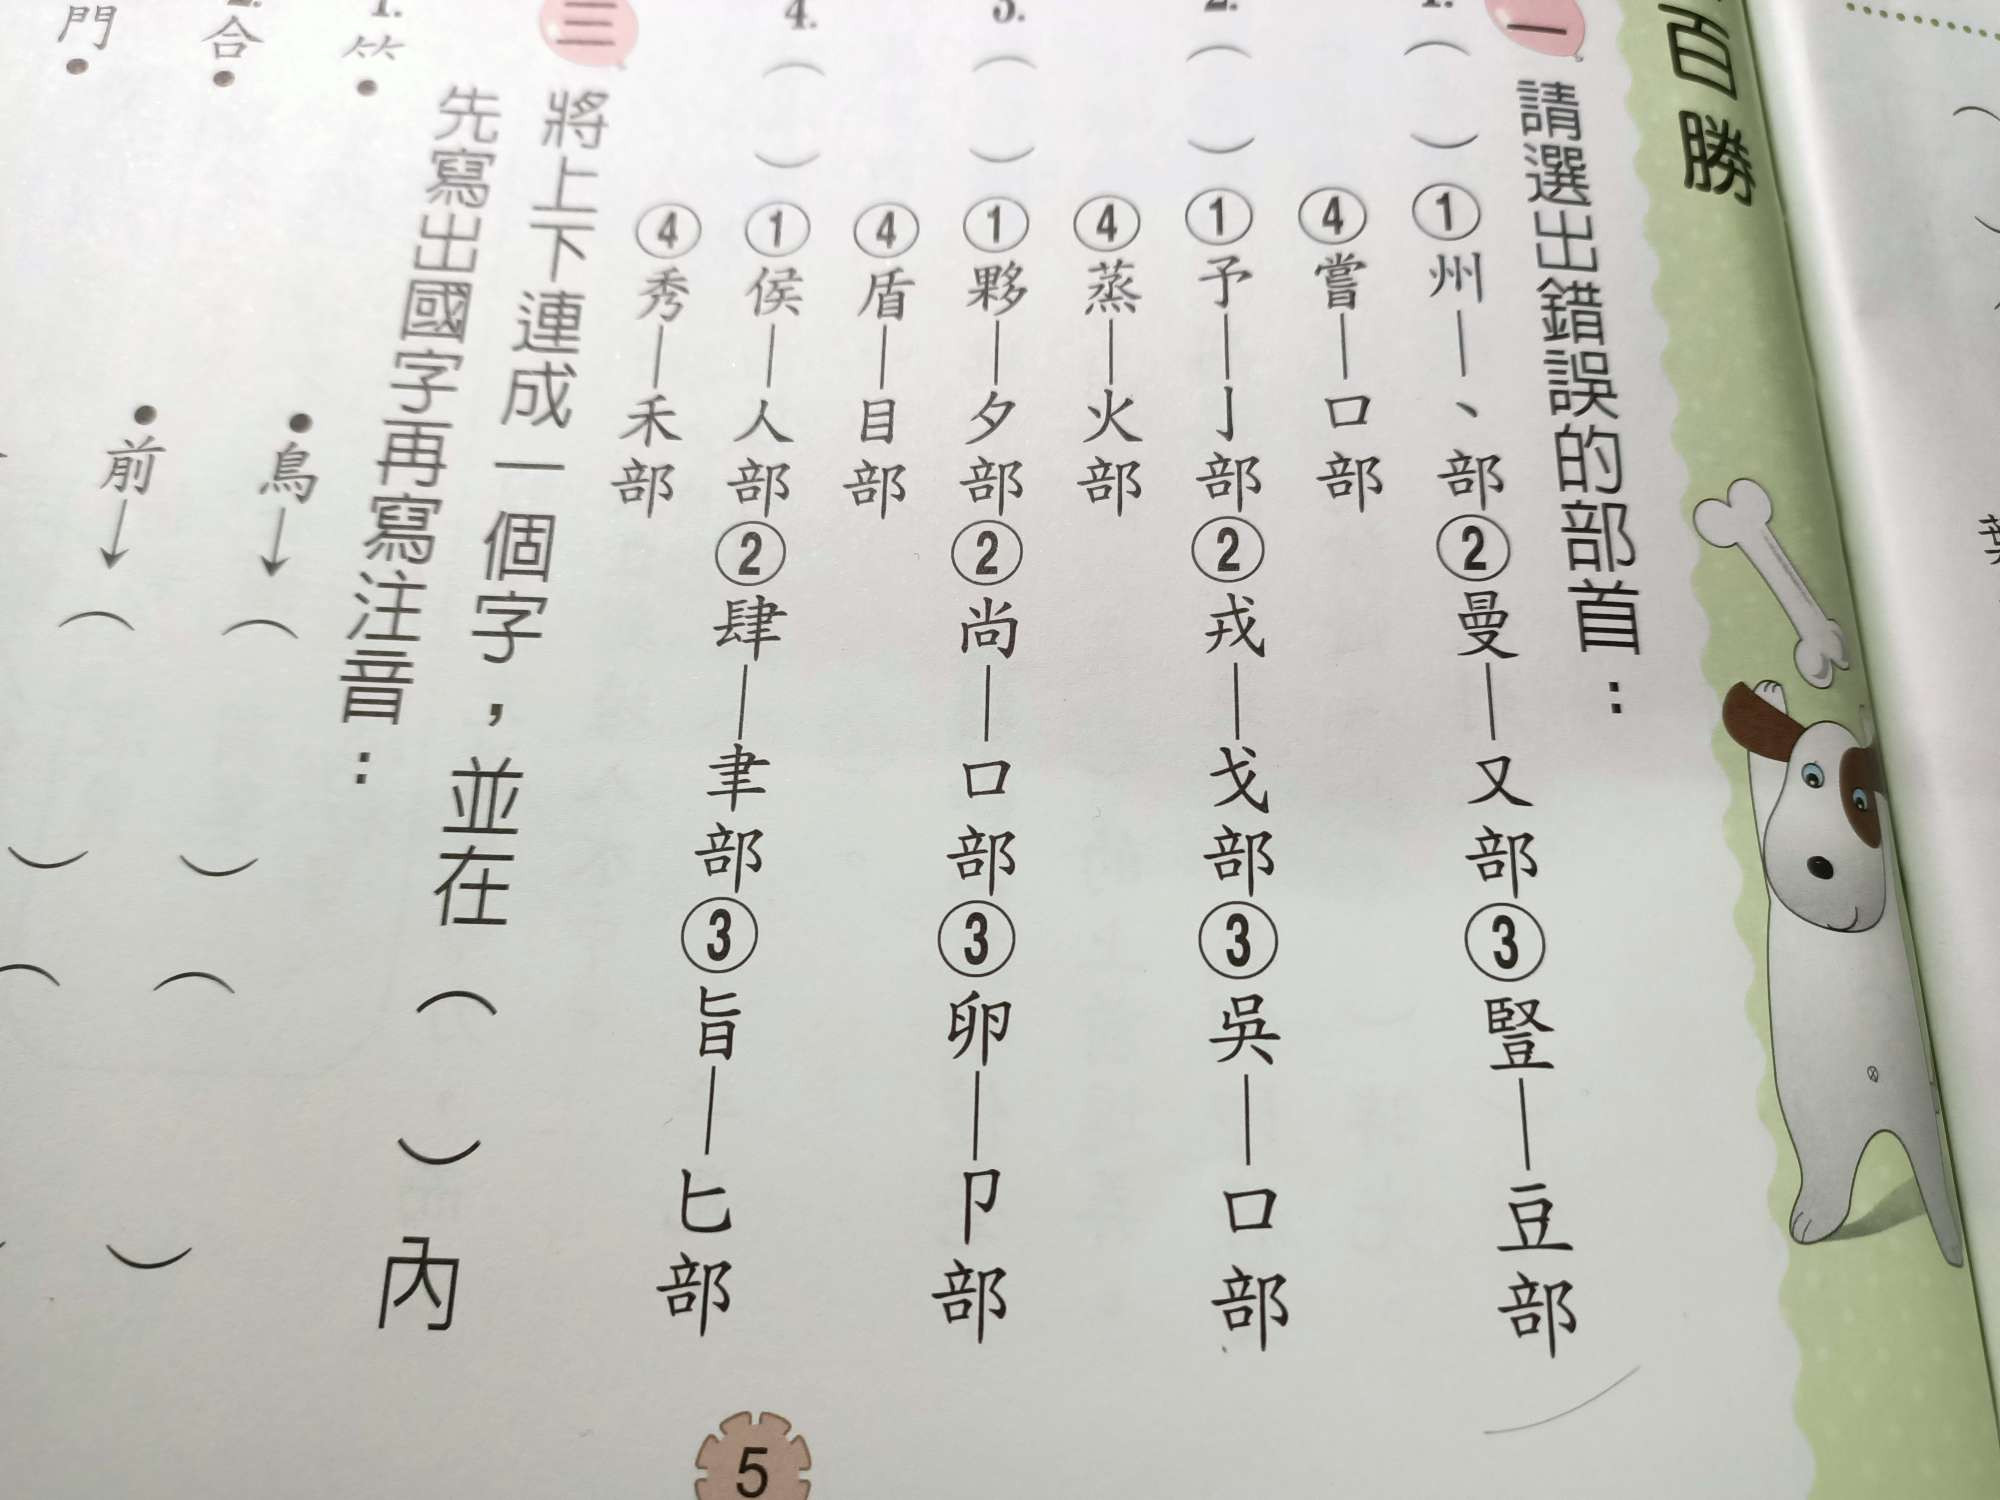 百勝
一 請選出錯誤的部首：
1.（ ）①州—丶部②曼—又部③豎—豆部
④嘗—口部
2.（ ）①予—亅部②戎—戈部③吳—口部
④蒸—火部
3.（ ）①夥—夕部②尚—口部③卵—卩部
④盾—目部
4.（ ）①侯—人部②肆—聿部③旨—匕部
④秀—禾部
三 將上下連成一個字，並在（ ）內
先寫出國字再寫注音：
1.
•鳥→（ ）（ ）
2.合•
•前→（ ）（ ）
門•
5